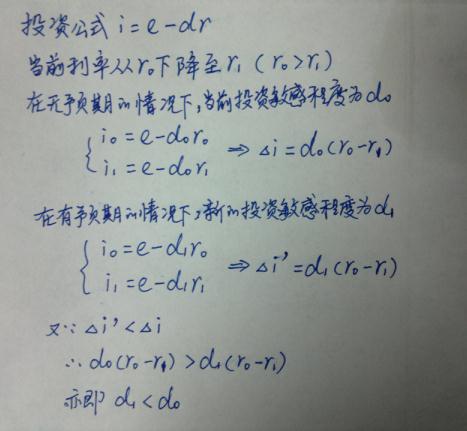 投资公式 i=e-dr
当前利率从r₀下降至r₁ (r₀>r₁)
在无预期的情况下,当前投资敏感程度为d₀
i₀=e-d₀r₀
i₁=e-d₀r₁ ⇒ △i=d₀(r₀-r₁)
在有预期的情况下,新的投资敏感程度为d₁
i₀=e-d₁r₀
i₁=e-d₁r₁ ⇒ △i'=d₁(r₀-r₁)
又∵ △i'<△i
∴ d₀(r₀-r₁)>d₁(r₀-r₁)
亦即 d₁<d₀